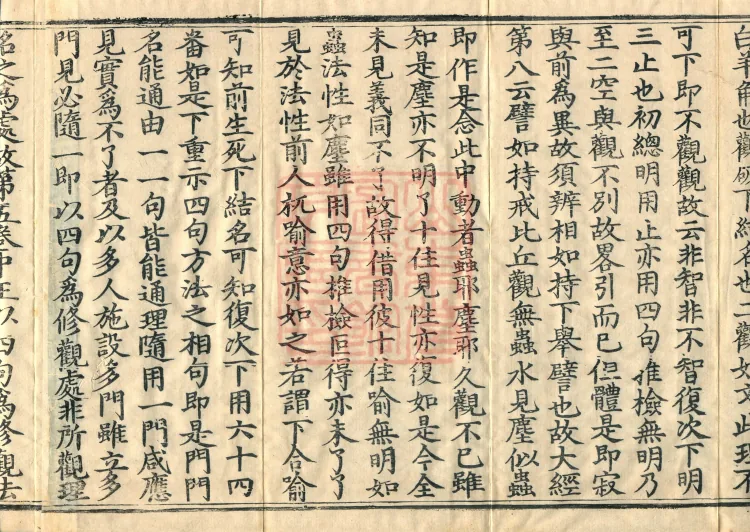 可下即不觀觀故云非智非不智復次下明
三止也初總明用止亦用四句推檢無明乃
至二空與觀不別故畧引而已但體是即寂
與前為異故須辨相如持下舉譬也故大經
第八云譬如持戒比丘觀無蟲水見塵似蟲
即作是念此中動者蟲耶塵耶久觀不已雖
知是塵亦不明了十住見性亦復如是今全
未見義同不了故得借用彼十住喻無明如
蟲法性如塵雖用四句推檢叵得亦未了了
見於法性前人杌喻意亦如之若謂下合喻
可知前生死下結名可知復次下用六十四
番如是下重示四句方法之相句即是門門
名能通由一一句皆能通理隨用一門咸應
見實為不了者及以多人施設多門雖立多
門見必隨一即以四句為修觀處非所觀理
名之為處故第五卷中正以四句為修觀法